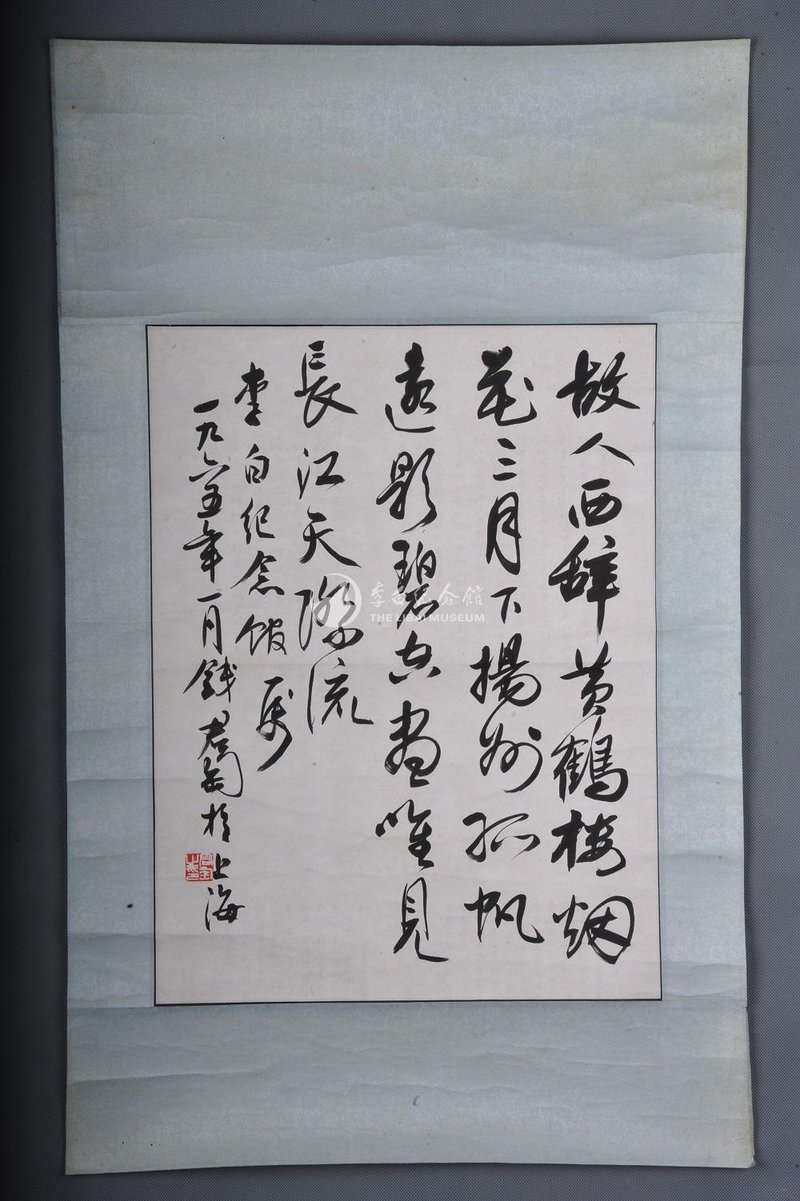 故人西辞黄鹤楼烟
花三月下揚州孤帆
遠影碧空盡唯見
長江天際流
李白纪念馆属
一九六五年一月錢君匋於上海
李白纪念馆
THE LIBAI MUSEUM